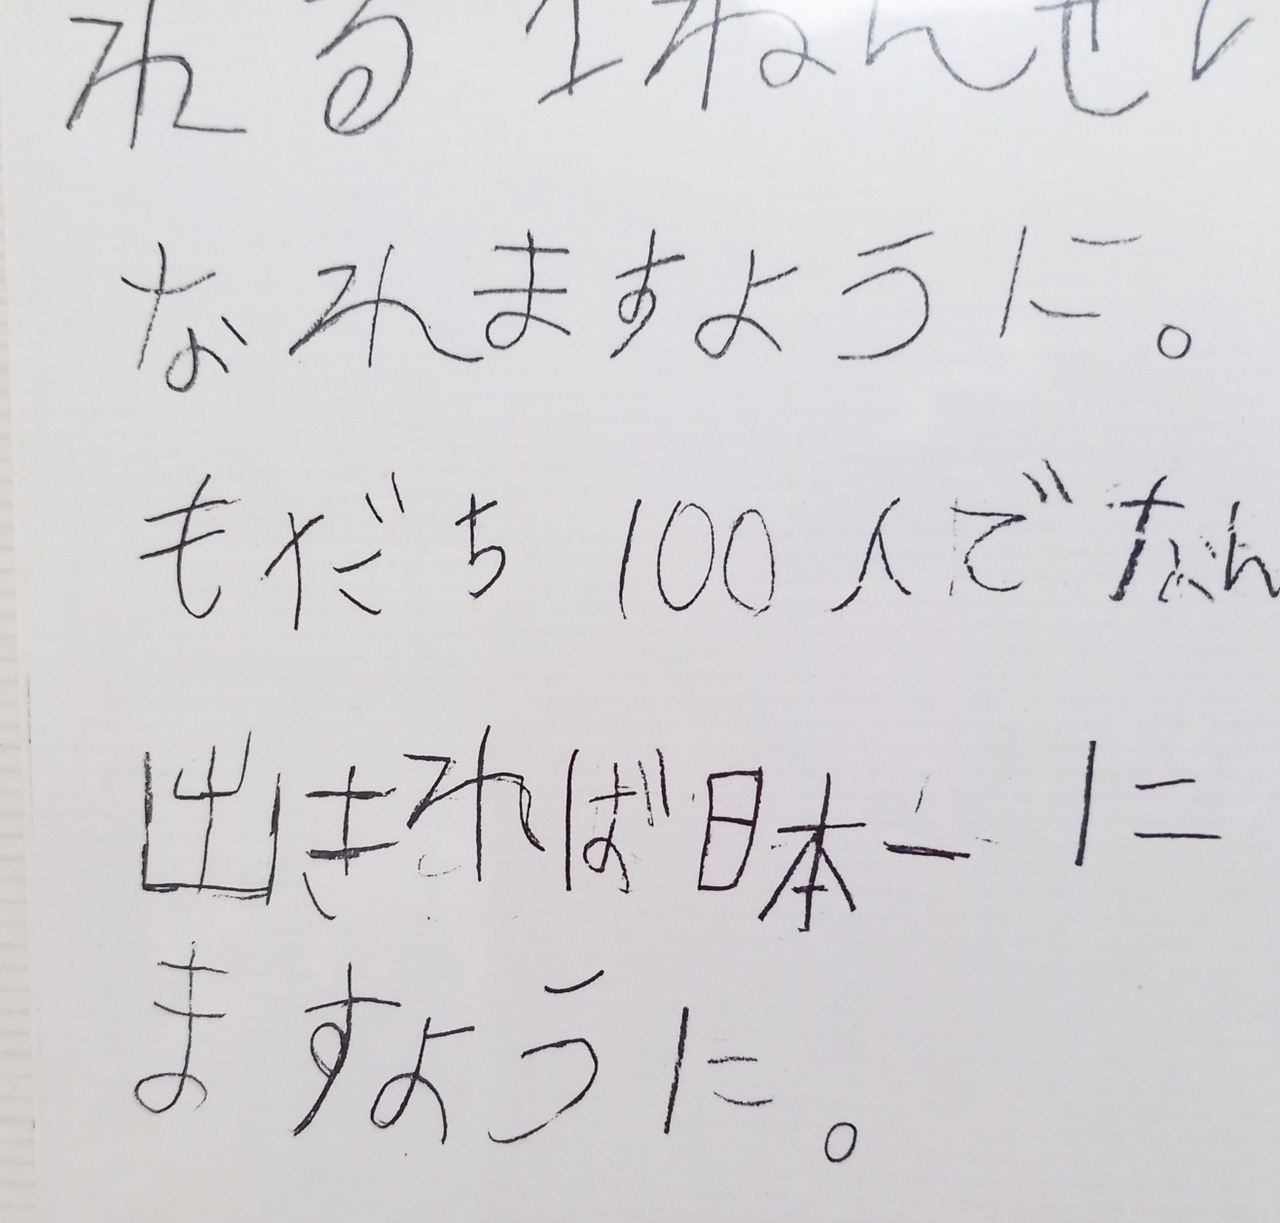 れる1ねんせい
なれますように。
もだち 100人でなん
出きれば日本一に
ますように。